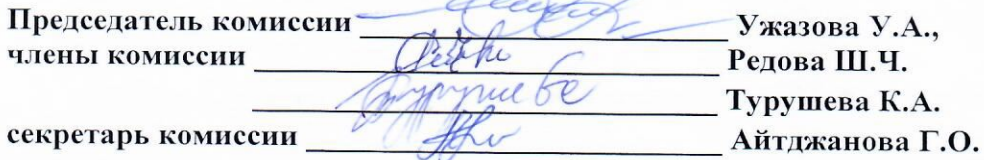 Председатель комиссии Ужазова У.А.,
члены комиссии Редова Ш.Ч.
Турушева К.А.
секретарь комиссии Айтджанова Г.О.